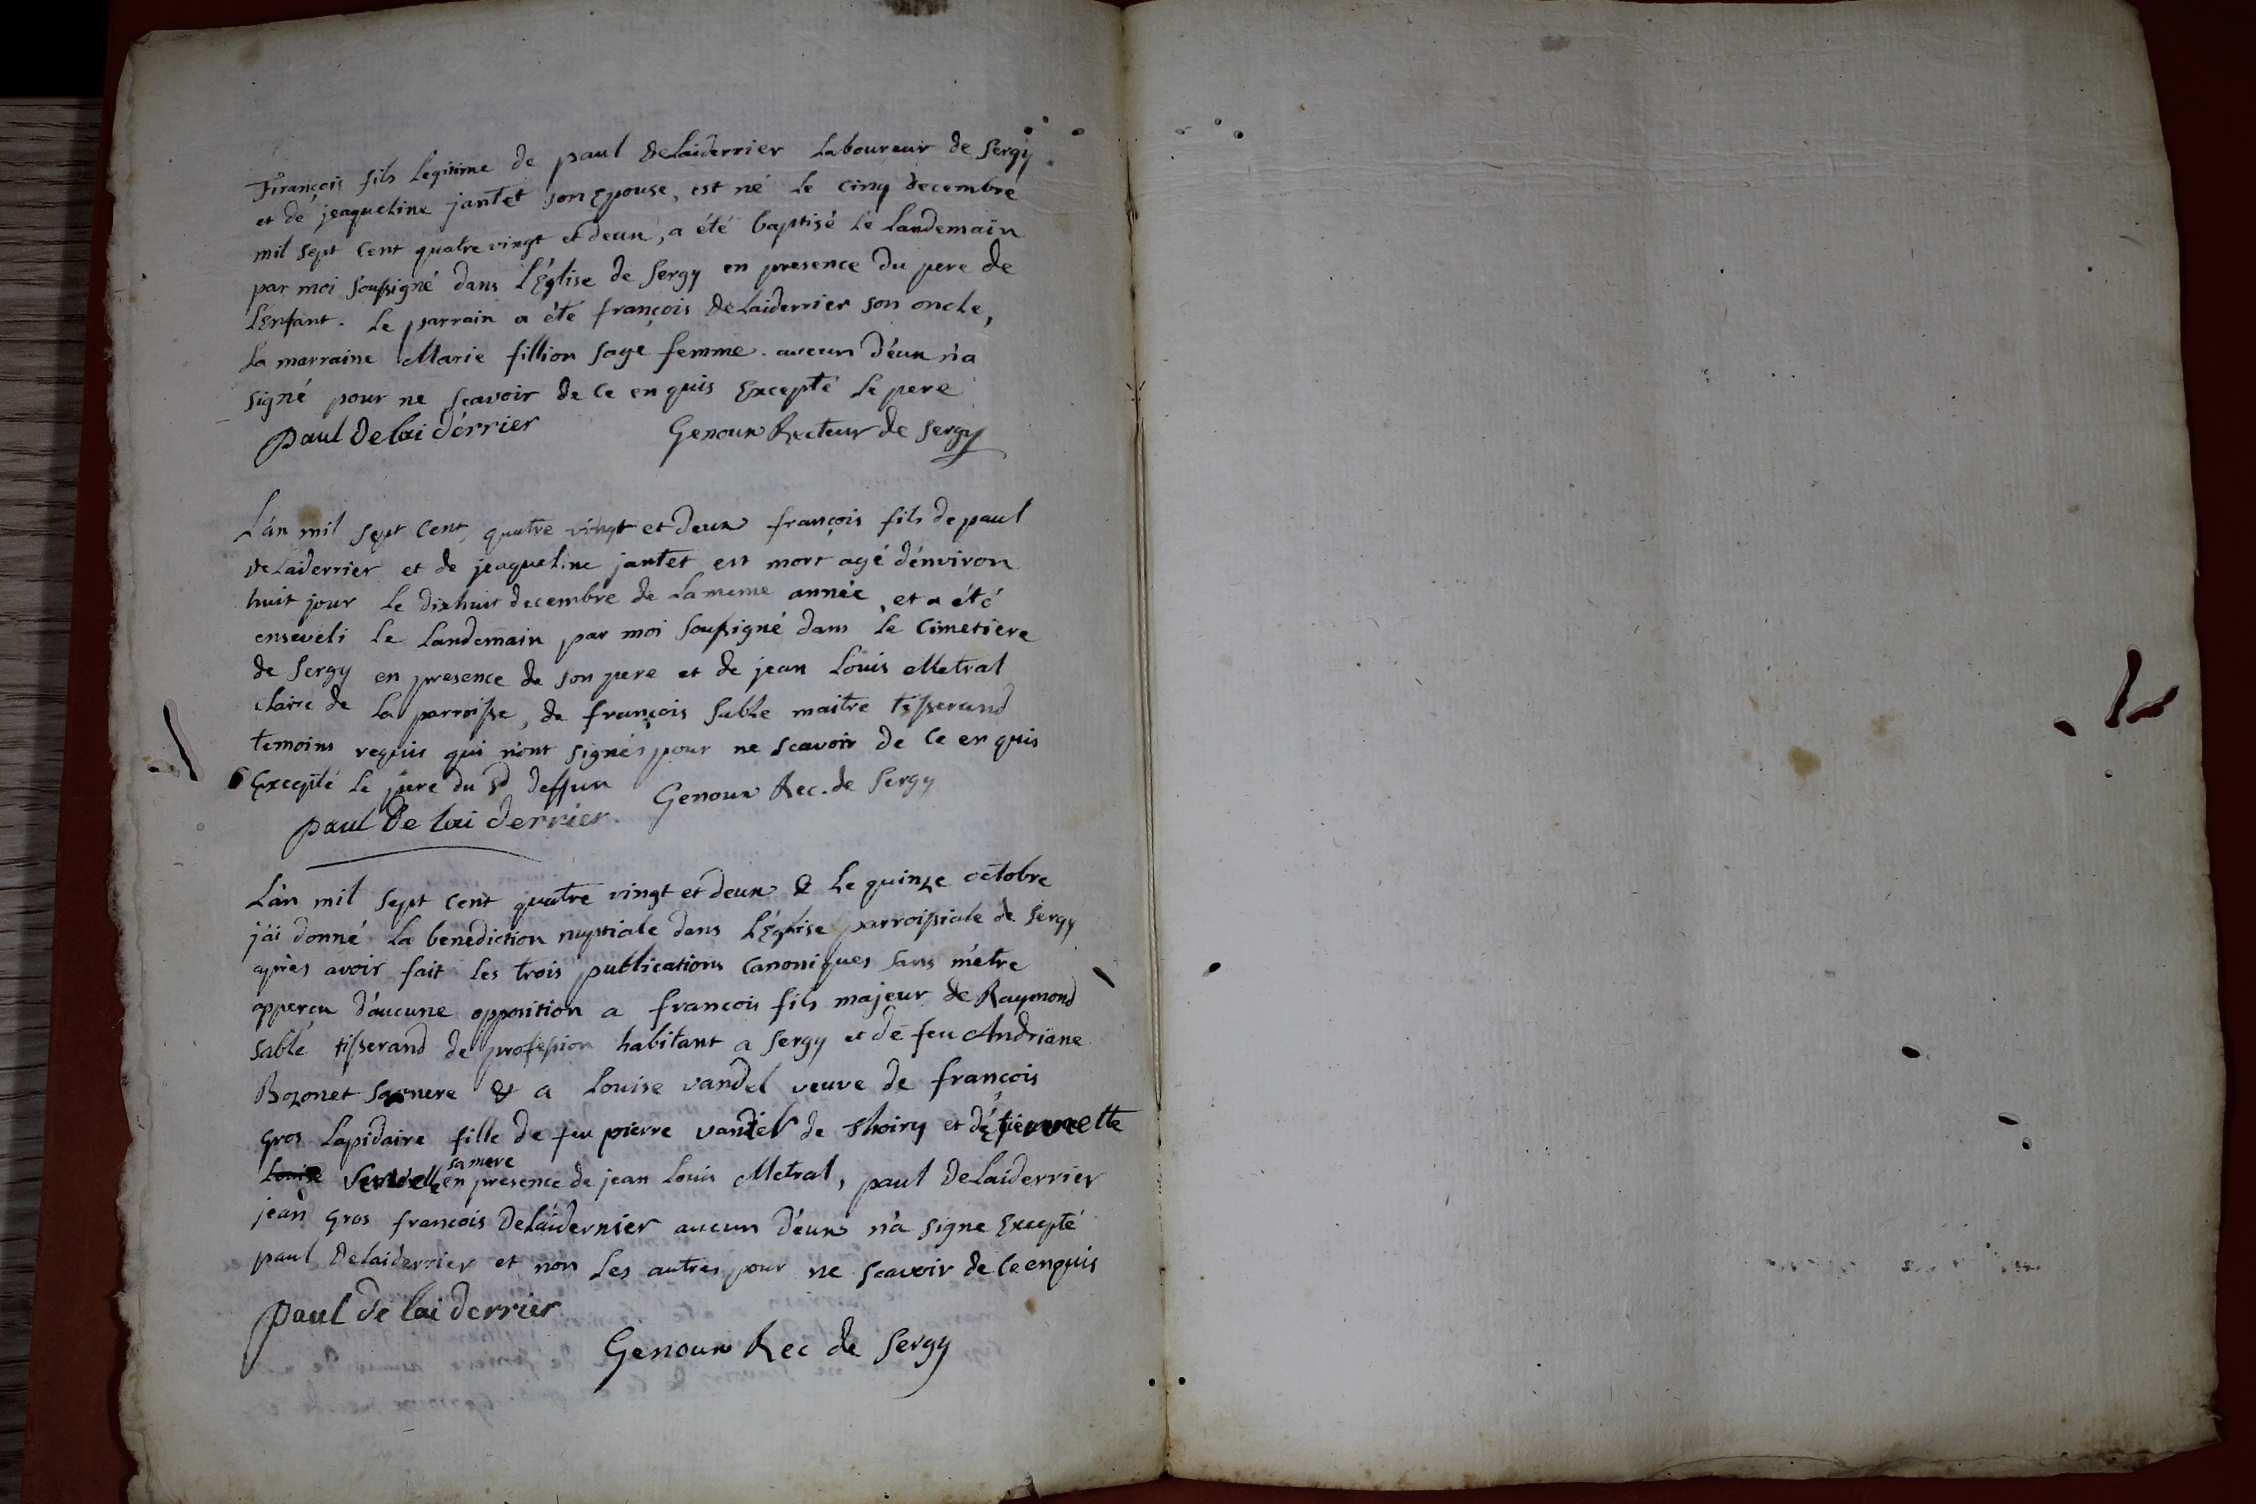 François fils legitime de paul delaiderrier laboureur de Sergy
et de jeaqueline jantet son Epouse, est né le cinq decembre
mil sept cent quatre vingt et deux, a été baptisé le landemain
par moi soussigné dans l'Eglise de Sergy en presence du pere de
l'Enfant. le parrain a été françois delaiderrier son oncle,
la marraine Marie fillion sage femme. aucun d'eux n'a
signé pour ne scavoir de ce enquis Excepté le pere
paul de lai derrier Genoux Recteur de Sergy
L'an mil sept cent quatre vingt et deux françois fils de paul
delaiderrier et de jeaqueline jantet est mort agé d'environ
huit jour le dixhuit decembre de la meme année, et a été
enseveli le landemain par moi soussigné dans le cimetiere
de Sergy en presence de son pere et de jean Louis Metral
clairc de la parroisse, de françois Sable maitre tisserand
temoins requis qui n'ont signés pour ne scavoir de ce enquis
Excepté le pere du sd deffun Genoux Rec. de Sergy
paul de lai derrier
L'an mil sept cent quatre vingt et deux & le quinze octobre
j'ai donné la benediction nuptiale dans l'Eglise parroissiale de Sergy
après avoir fait les trois publications canoniques sans m'être
apperçu d'aucune opposition a francois fils majeur de Raymond
Sable tisserand de profession habitant a Sergy et de feu Andriane
Bozonet sa mere & a Louise vandel veuve de françois
Gros Lapidaire fille de feu pierre vandel de Thoiry et d'Etiennette
Louise sa mere en presence de jean Louis Metral, paul delaiderrier
jean Gros francois delaidernier aucun d'eux n'a signe Excepté
paul delaiderrier et non les autres pour ne scavoir de ce enquis
paul de lai derrier
Genoux Rec de Sergy